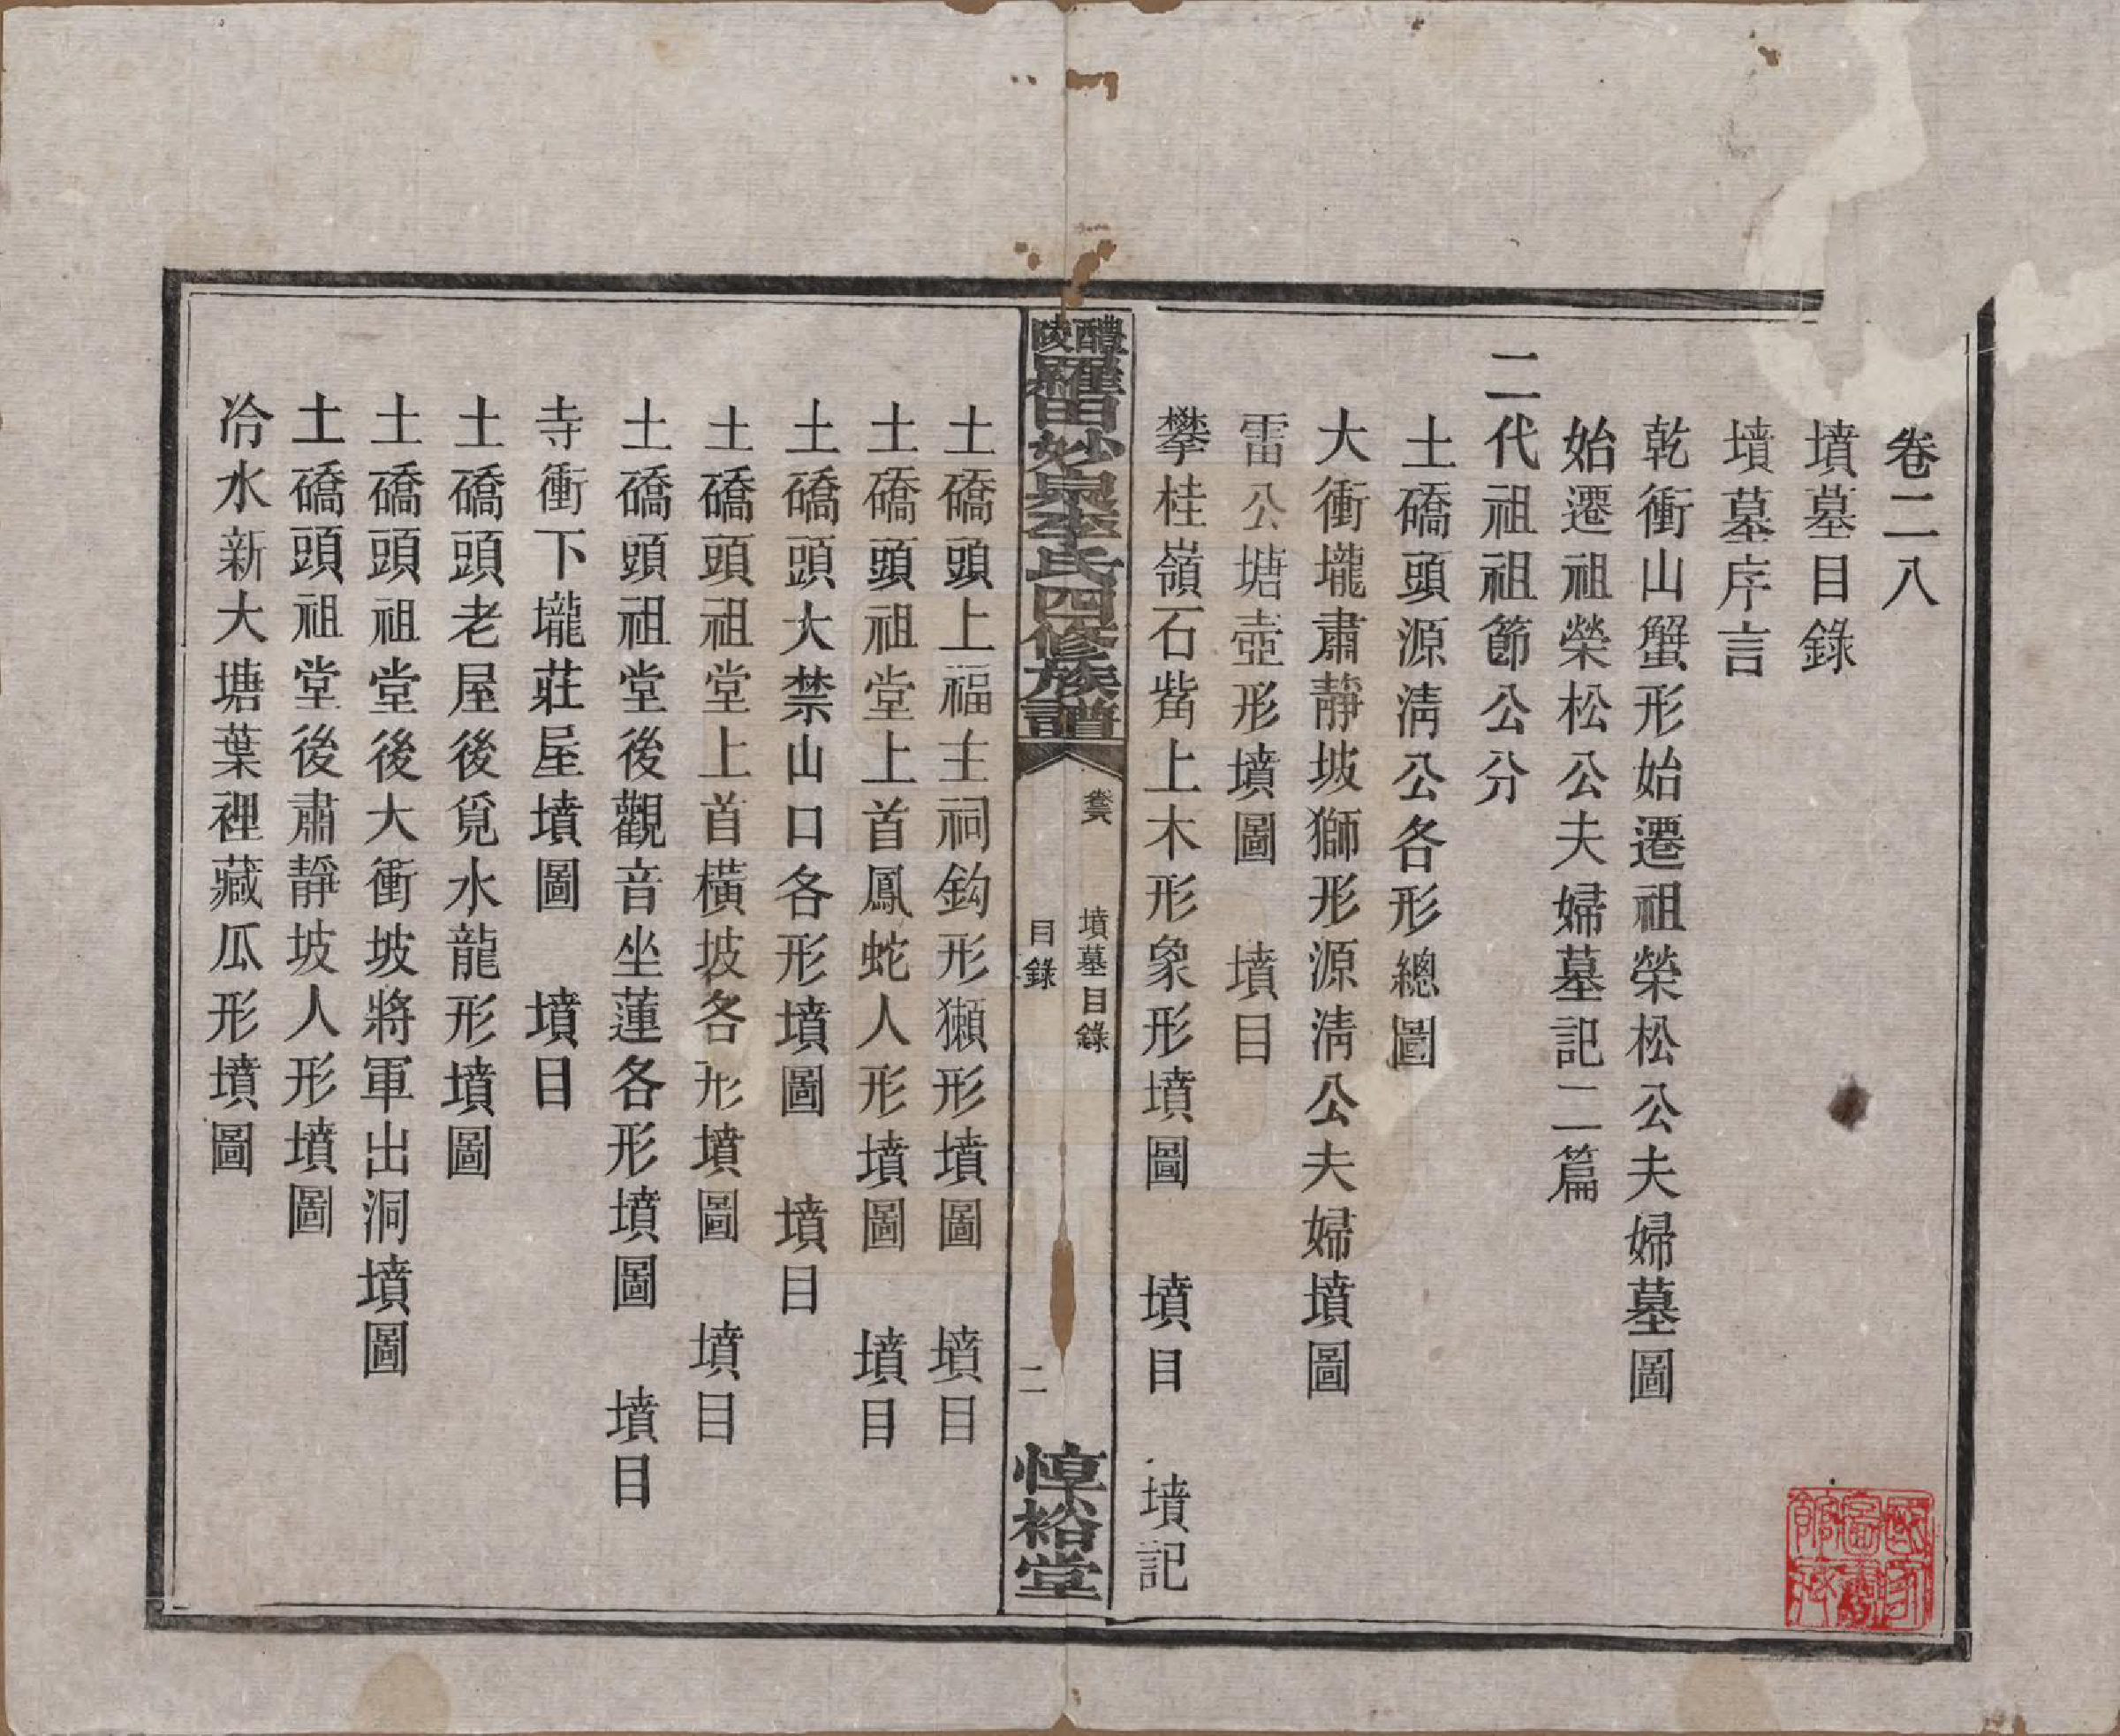 卷二八
墳墓目錄
墳墓序言
乾衝山蟹形始遷祖榮松公夫婦墓圖
始遷祖榮松公夫婦墓記二篇
二代祖祖節公分
土礄頭源淸公各形總圖
大衝壠肅靜坡獅形源淸公夫婦墳圖
雷公塘壺形墳圖 墳目
攀桂嶺石觜上木形象形墳圖 墳目 墳記
醴陵羅田妙泉李氏四修族譜
墳墓目錄
目錄
二
惇裕堂
土礄頭上福主祠鈎形獺形墳圖 墳目
土礄頭祖堂上首鳳蛇人形墳圖 墳目
土礄頭大禁山口各形墳圖 墳目
土礄頭祖堂上首橫坡各形墳圖 墳目
土礄頭祖堂後觀音坐蓮各形墳圖 墳目
寺衝下壠莊屋墳圖 墳目
土礄頭老屋後覓水龍形墳圖
土礄頭祖堂後大衝坡將軍出洞墳圖
土礄頭祖堂後肅靜坡人形墳圖
冷水新大塘葉裡藏瓜形墳圖
國家圖書館藏